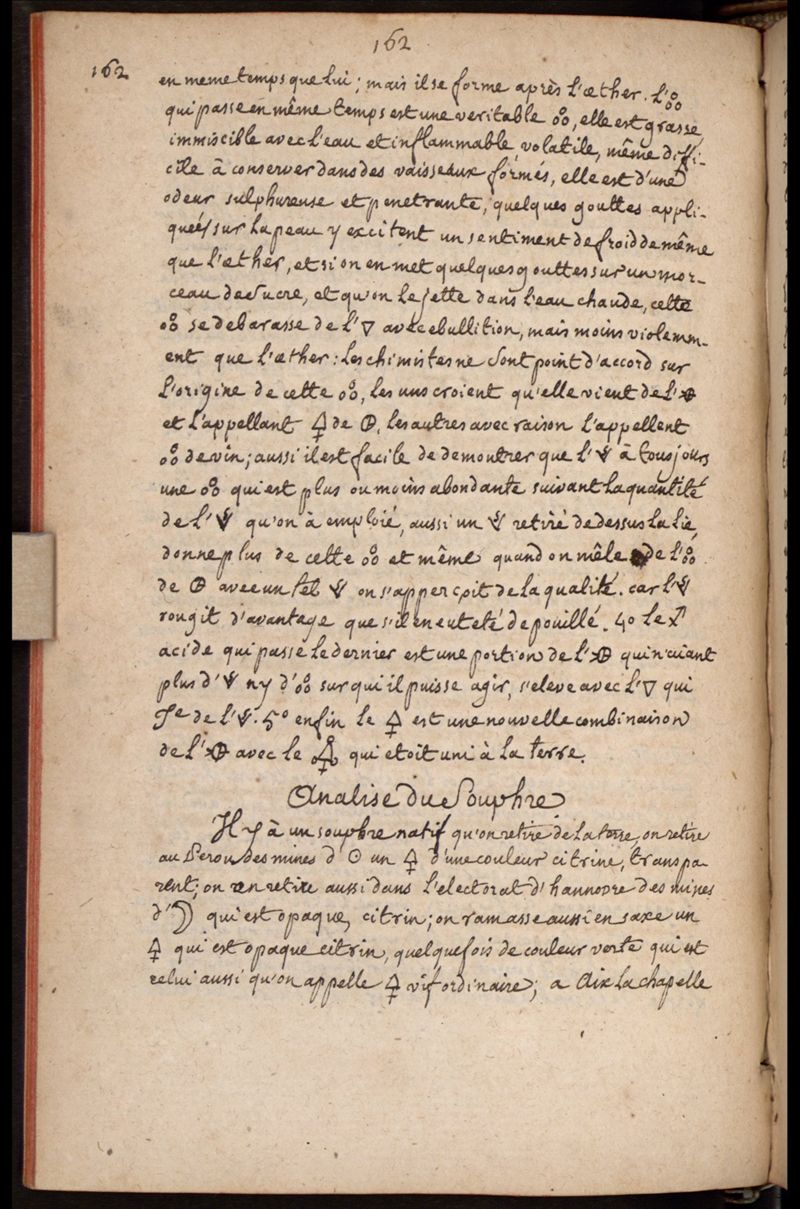 162
162
en meme temps que lui; mais il se forme après l'æther. l'🝆
qui passe en même temps est une veritable 🝆, elle est grasse,
immiscible avec l'eau et inflammable, volatile, même diffi-
cile à conserver dans des vaisseaux formés, elle est d'une
odeur sulphureuse et penetrante, quelques gouttes appli-
queés sur la peau y excitent un sentiment de froid de même
que l'æther, et si on en met quelques gouttes sur un mor-
ceau de sucre, et qu'on le jette dans l'eau chaude, cette
🝆 se debarasse de l'🜄 avec ebullition, mais moins violemm-
ent que l'æther: les chimistes ne sont point d'accord sur
l'origine de cette 🝆, les uns croient qu'elle vient de l'🜖
et l'appellant 🜍 de 🜖, les autres avec raison l'appellent
🝆 de vin; aussi il est facile de demontrer que l'🜈 à tousjours
une 🝆 qui est plus ou moins abondante suivant la quantité
de l'🜈 qu'on à emploié, aussi un 🜈 retiré de dessus la lie,
donne plus de cette 🝆 et même quand on mêle de l'🝆
de 🜖 avec un tel 🜈 on s'apperçoit de la qualité. car l'🜈
rougit d'avantage que s'il en eut eté depouillé. 4o le
acide qui passe le dernier est une portion de l'🜖 qui n'aiant
plus d'🜈 ny d'🝆 sur qui il puisse agir, s'eleve avec l'🜄 qui
de l'🜈. 5o enfin le 🜍 est une nouvelle combinaison
de l'🜖 avec le 🜍 qui etoit uni à la terre.
Analise du Souphre
Il y à un souphre natif qu'on retire de la terre, on retire
au Perou des mines d'☉ un 🜍 d'une couleur citrine, transpa
rent; on en retire aussi dans l'electorat d'hannovre des mines
d'☽ qui est opaque, citrin; on ramasse aussi en saxe un
🜍 qui est opaque citrin, quelquefois de couleur verte qui est
celui aussi qu'on appelle 🜍 vif ordinaire; a Aix la chapelle